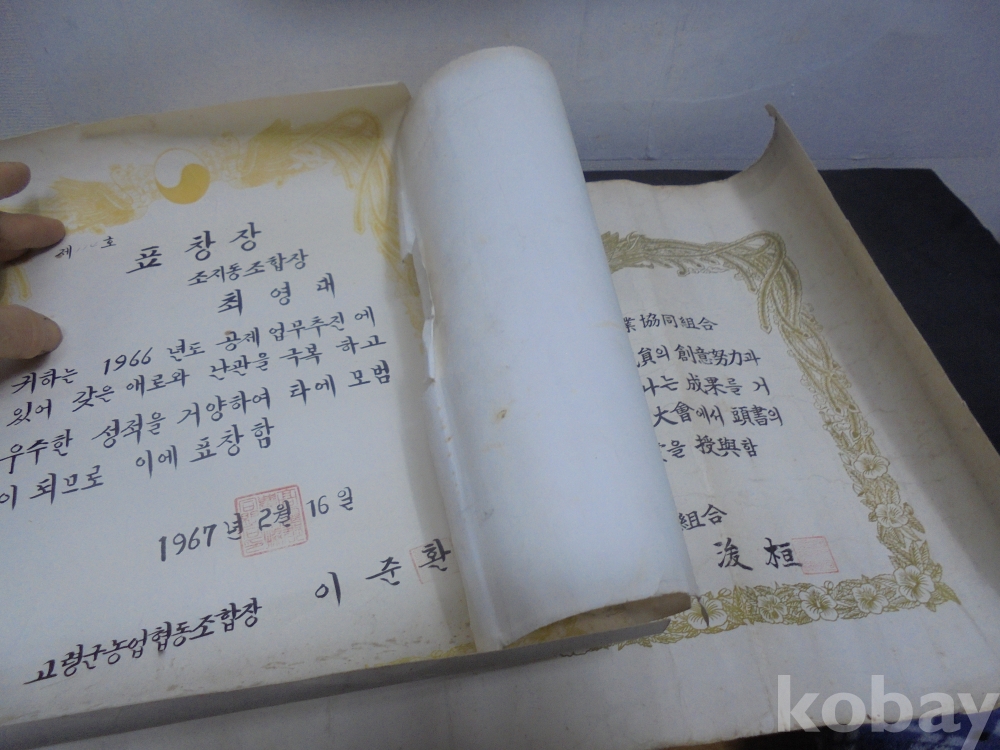 제 호
표창장
조지동조합장
최영대
귀하는 1966년도 공제 업무추진에
있어 갖은 애로와 난관을 극복하고
우수한 성적을 거양하여 타에 모범
이 되므로 이에 표창함
1967년 2월 16일
이준환
고령군농업협동조합장
業協同組合
員의 創意努力과
나는 成果를 거
大會에서 頭書의
을 授與함
組合
浚桓
kobay